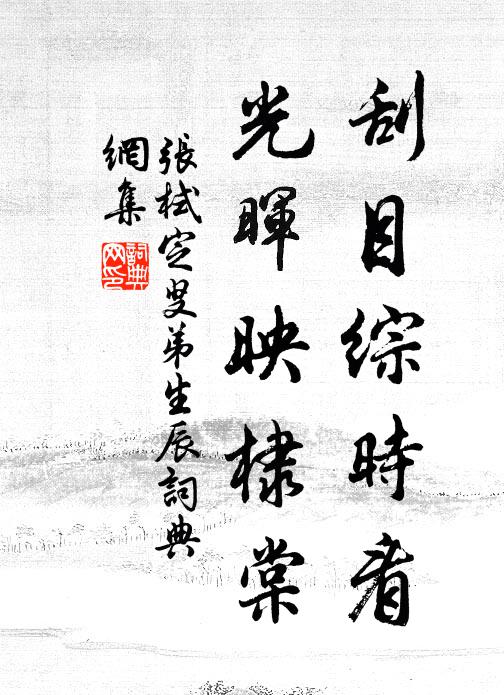 刮目綜時看
光暉映棣棠
張栻定叟弟生辰詞典
網集
詞典网印